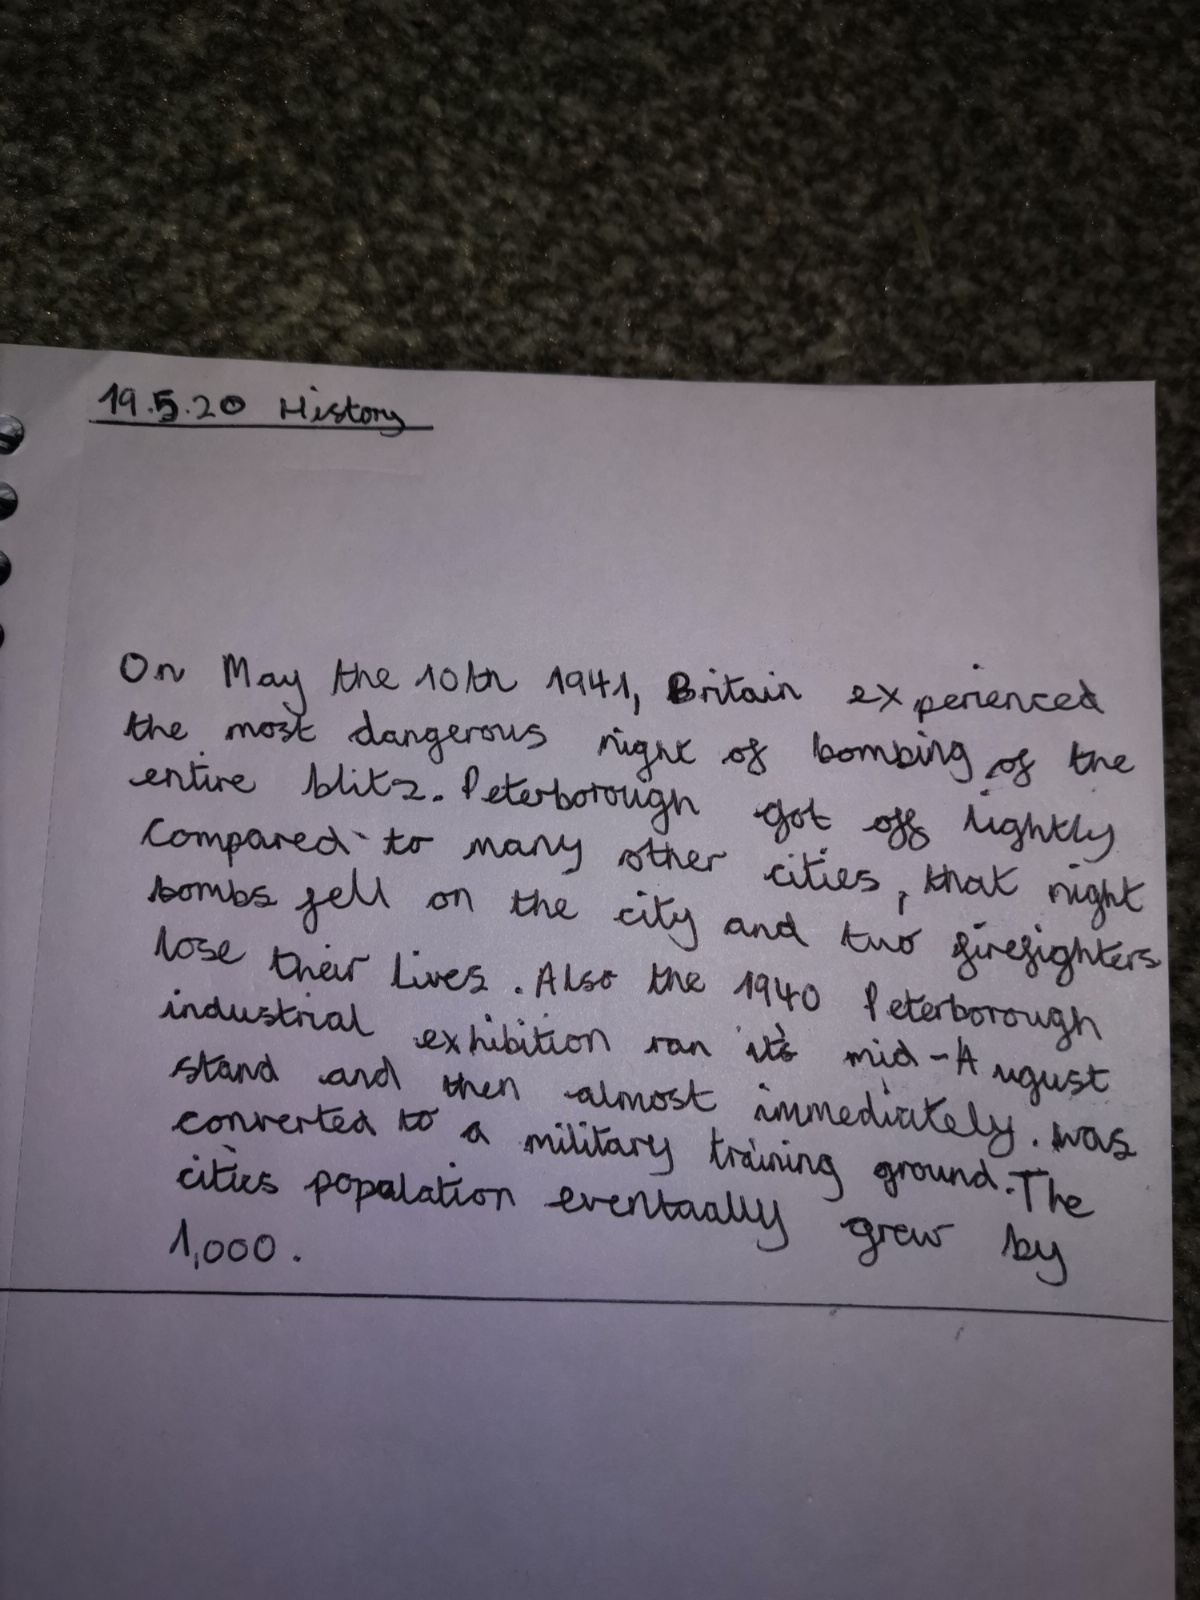 19.5.20 History
On May the 10th 1941, Britain experienced
the most dangerous night of bombing of the
entire blitz. Peterborough got off lightly
compared to many other cities, that night
bombs fell on the city and two firefighters
lose their lives. Also the 1940 Peterborough
industrial exhibition ran it's mid-August
stand and then almost immediately. was
converted to a military training ground. The
cities popalation eventaally grew by
1,000.